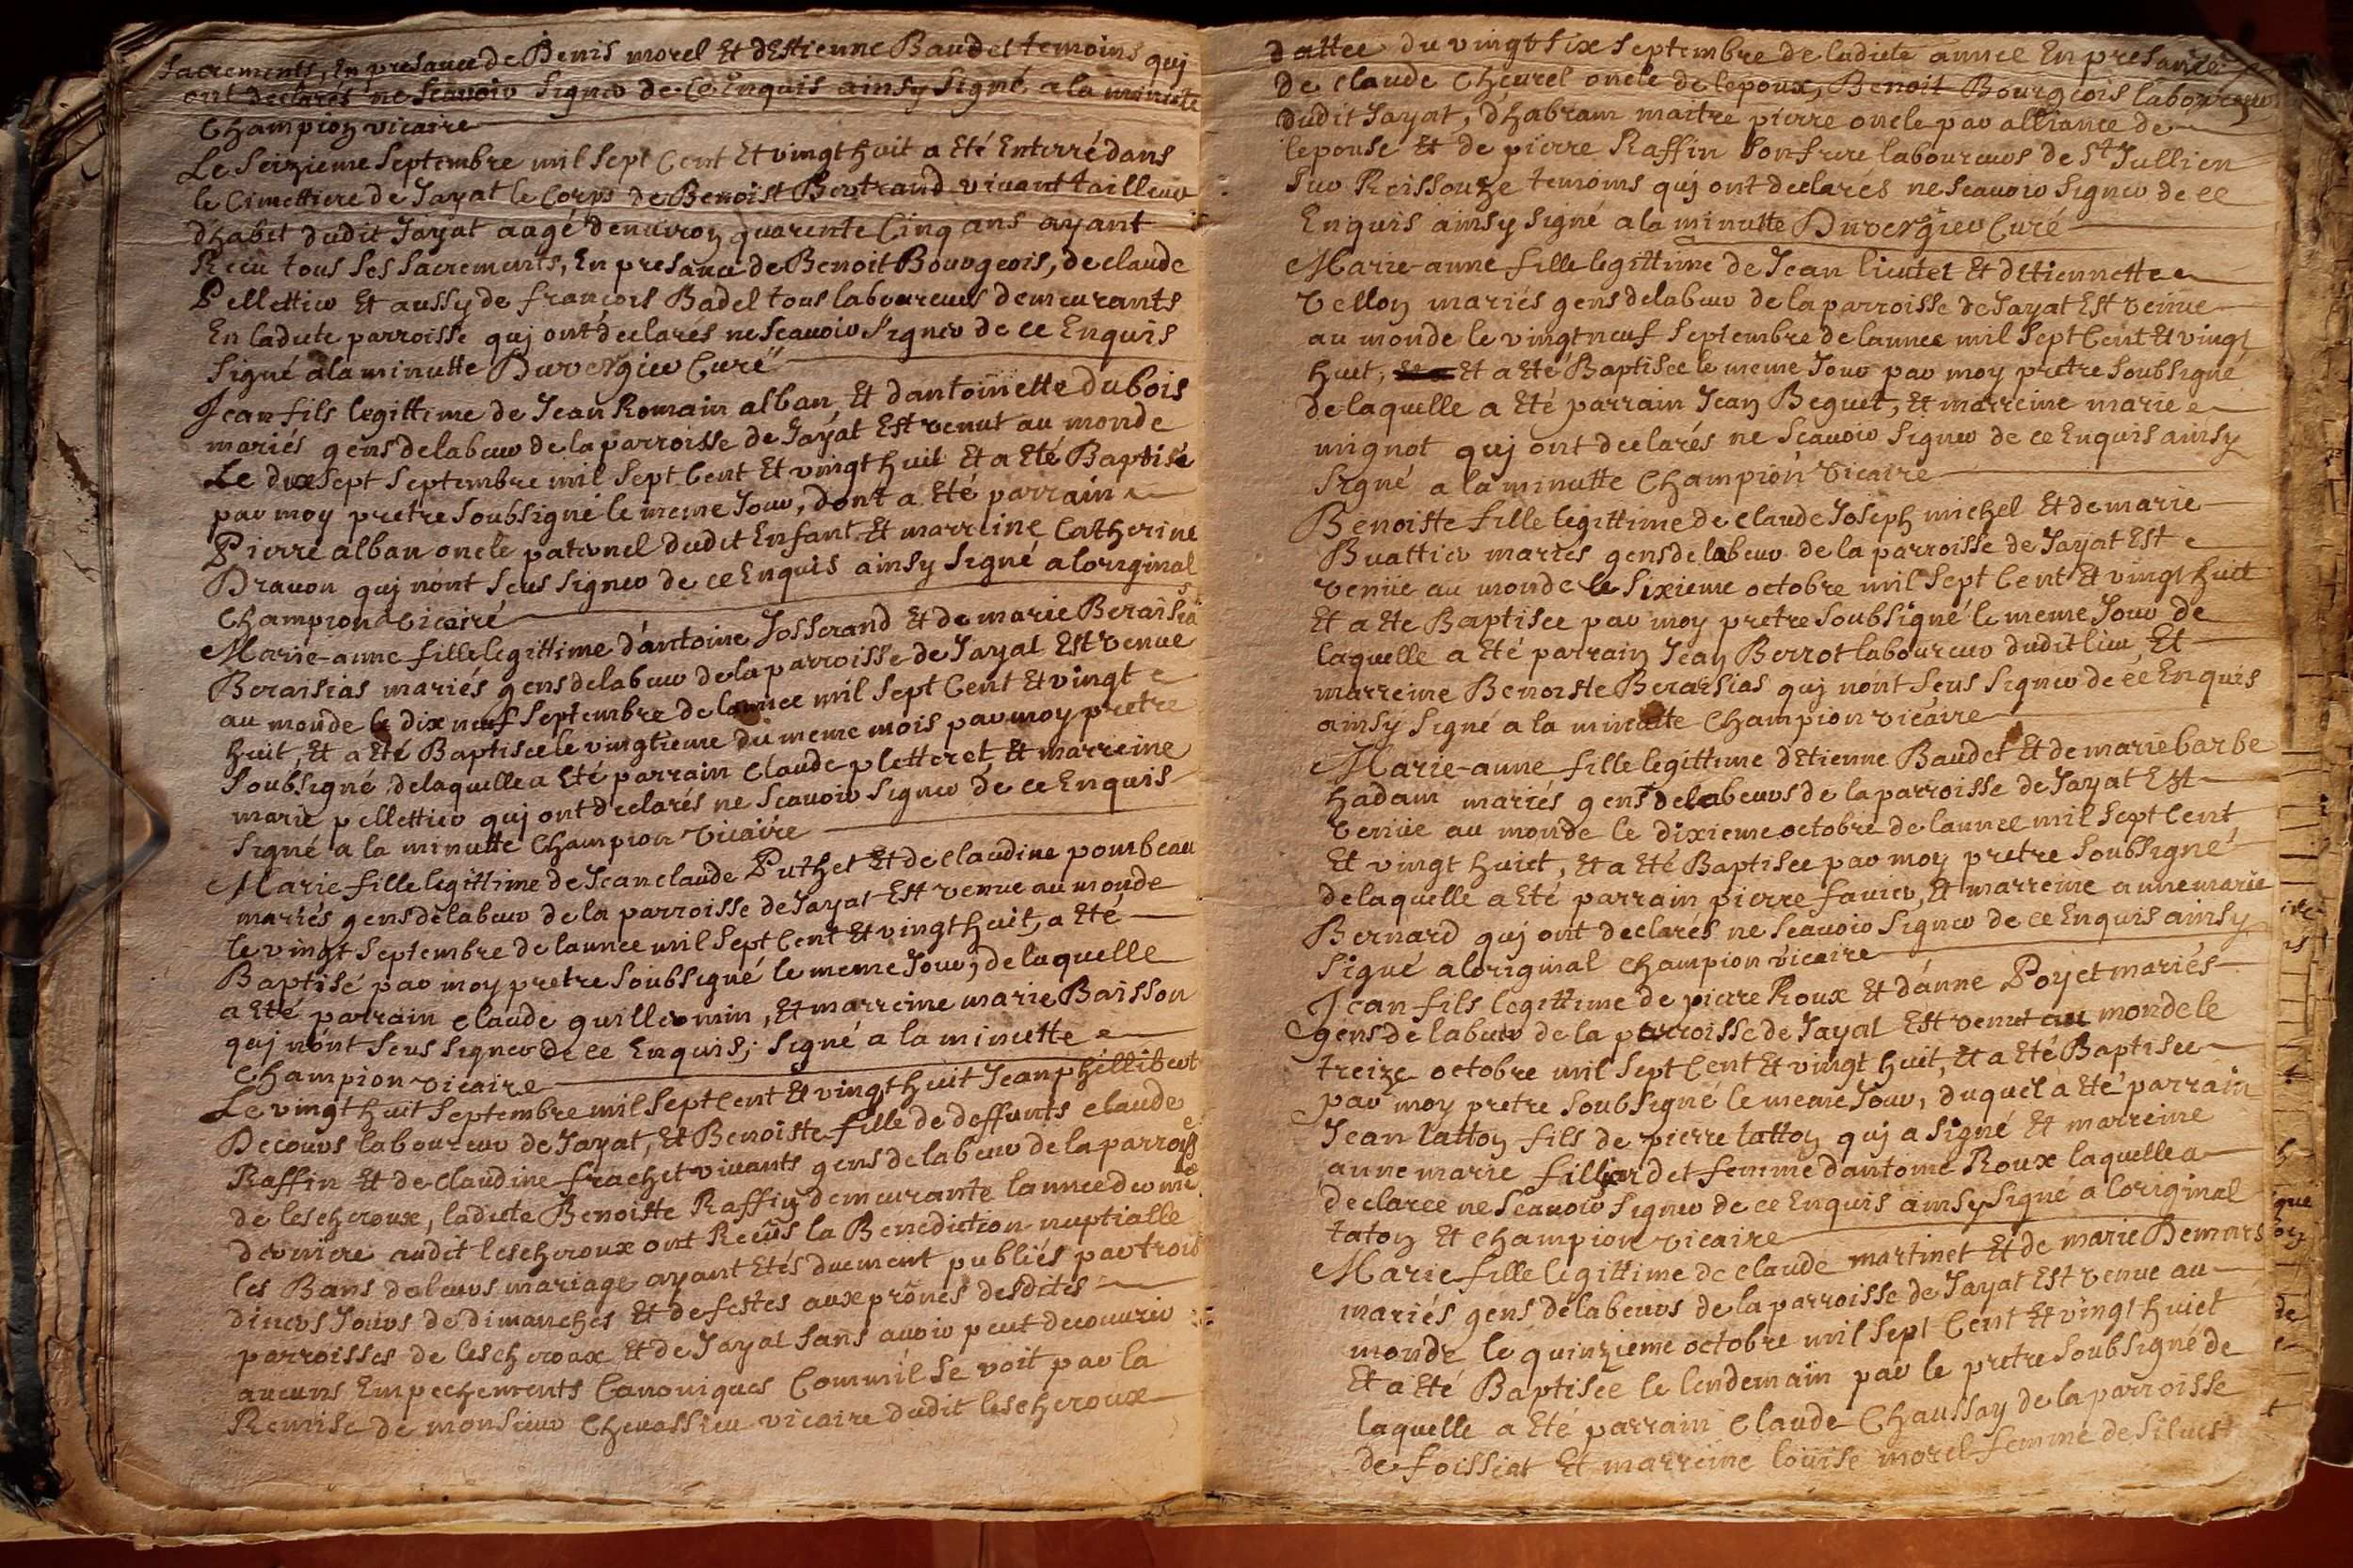 Sacrements, En presance de Denis morel Et dEstienne Baudet temoins quj
ont declarés ne Scavoir Signer de Ce Enquis ainsy Signé a la minute
Champion vicaire
Le Seizieme Septembre mil Sept Cent Et vingt huit a Eté Enterré dans
le Cimettiere de Jayat le Corps de Benoist Bertrand vivant tailleur
dhabit dudit Jayat aagé denviron quarente Cinq ans ayant
Receu tous Ses Sacrements, En presance de Benoit Bourgeois, de claude
Pellettier Et aussy de françois Badel tous laboureurs demeurants
En ladite parroisse quj ont declarés ne Scavoir Signer de ce Enquis
Signé a la minutte Duvergier Curé
Jean fils legittime de Jean Romain alban Et dantoinette dubois
mariés gens delabeur de la parroisse de Jayat Est venut au monde
Le dixSept Septembre mil Sept Cent Et vingt huit Et a Eté Baptisé
par moy pretre Soubsigné le meme Jour, dont a Eté parrain
Pierre alban oncle paternel dudit Enfant Et marreine Catherine
Dravon quj nont Seus Signer de ce Enquis ainsy Signé a loriginal
Champion vicaire
Marie-anne fille legittime d'antoine Josserand Et de marie
Beraisias mariés gens delabeur dela parroisse de Jayat Est venue
au monde le dix neuf Septembre de lannee mil Sept Cent Et vingt
huit, Et a Eté Baptisee le vingtieme du meme mois par moy pretre
Soubsigné delaquelle a Eté parrain Claude pletteret, Et marreine
marie pellettier quj ont declarés ne Scavoir Signer de ce Enquis
Signé a la minutte Champion vicaire
Marie fille legittime de Jean claude Puthet Et de claudine pombeau
mariés gens de labeur de la parroisse de Jayat Est venue au monde
le vingt Septembre de lannee mil Sept Cent Et vingt huit, a Eté
Baptisé par moy pretre Soubsigné le meme Jour, de laquelle
a Eté parrain claude guillermin, Et marreine marie Baisson
quj nont Seus Signer de ce Enquis, Signé a la minutte
Champion vicaire
Le vingt huit Septembre mil Sept Cent Et vingt huit Jean phillibert
Decours laboureur de Jayat, Et Benoiste fille de deffunts claude
Raffin Et de claudine frachet vivants gens de labeur de la parroisse
de lescheroux, ladite Benoiste Raffin demeurante lannee
derniere audit lescheroux ont Receüs la Benediction nuptialle
les Bans de leurs mariage ayant Etés duement publiés par trois
divers Jours de dimanches Et de festes aux prônes desdites
parroisses de lescheroux Et de Jayat Sans avoir peut decouvrir
aucuns Empechements Canoniques Commil Se voit par la
Remise de monsieur Chevassieu vicaire dudit lescheroux
dattee du vingt Six Septembre de ladite annee En presance
de claude Cheurel oncle de lepoux, Benoit Bourgeois laboureur
dudit Jayat, d'habram maitre pierre oncle par alliance de
lepouse Et de pierre Raffin Son frere laboureurs de St Jullien
Sur Reissouze temoins quj ont declarés ne Scavoir Signer de ce
Enquis ainsy Signé a la minutte Duvergier Curé
Marie-anne fille legittime de Jean lieutet Et dEtiennette
vellon mariés gens delabeur de la parroisse de Jayat Est venue
au monde le vingt neuf Septembre de lannee mil Sept Cent Et vingt
huit, Et a Eté Baptisee le meme Jour par moy pretre Soubsigné
de laquelle a Eté parrain Jean Beguet, Et marreine marie
mignot quj ont declarés ne Scavoir Signer de ce Enquis ainsy
Signé a la minutte Champion vicaire
Benoiste fille legittime de claude Joseph michel Et de marie
Buattier mariés gens de labeur de la parroisse de Jayat Est
venüe au monde le Sixieme octobre mil Sept Cent Et vingt huit
Et a Ete Baptisee par moy pretre Soubsigné le meme Jour de
laquelle a Eté parrain Jean Berrot laboureur dudit lieu, Et
marreine Benoiste Beraisias quj nont Seus Signer de ce Enquis
ainsy Signé a la minutte Champion vicaire
Marie-anne fille legittime dEtienne Baudet Et de marie barbe
hadam mariés gens delabeurs de la parroisse de Jayat Est
venüe au monde le dixieme octobre de lannee mil Sept Cent
Et vingt huict, Et a Eté Baptisee par moy pretre Soubsigné
de laquelle a Eté parrain pierre favier, Et marreine anne marie
Bernard quj ont declarés ne Scavoir Signer de ce Enquis ainsy
Signé a loriginal Champion vicaire
Jean fils legittime de pierre Roux Et d'anne Poyet mariés
gens de labeur de la parroisse de Jayat Est venut au monde le
treize octobre mil Sept Cent Et vingt huit, Et a Eté Baptisee
par moy pretre Soubsigné le meme Jour, duquel a Eté parrain
Jean tatton fils de pierre tatton quj a Signé Et marreine
anne marie filliardet femme dantoine Roux laquelle a
declaree ne Scavoir Signer de ce Enquis ainsy Signé a loriginal
taton Et Champion vicaire
Marie fille legittime de claude martinet Et de marie Demars
mariés gens delabeurs de la parroisse de Jayat Est venue au
monde le quinzieme octobre mil Sept Cent Et vingt huict
Et a Eté Baptisee le lendemain par le pretre Soubsigné de
laquelle a Eté parrain Claude Chaussay de la parroisse
de foissiat Et marreine louise morel femme de Silvest